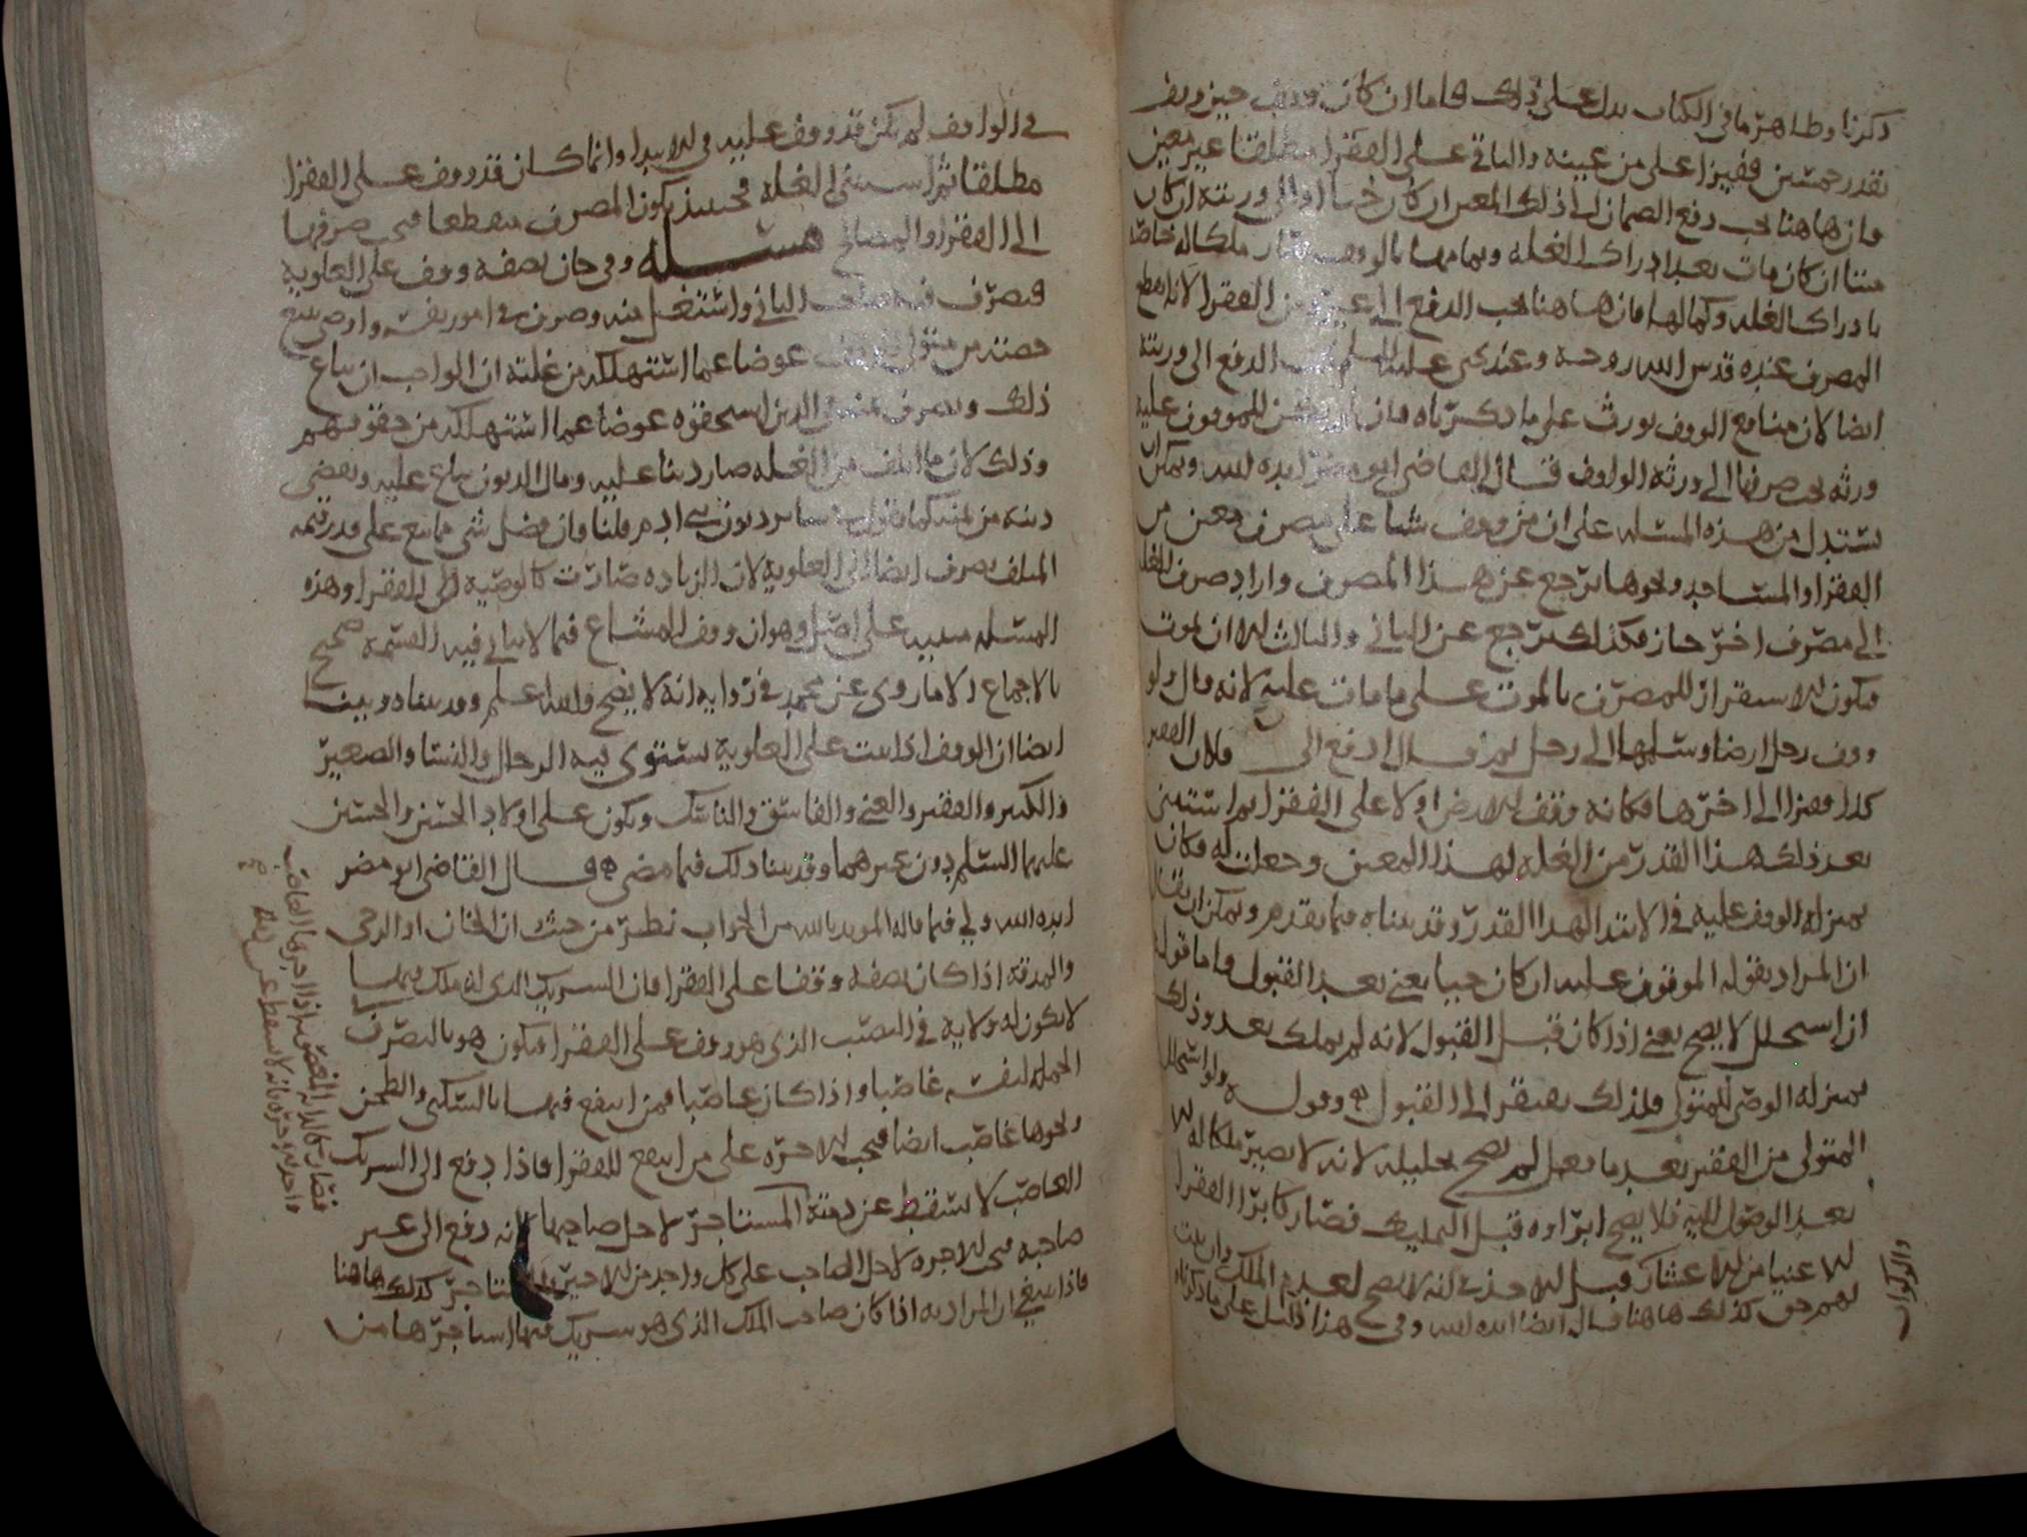 ذكرنا وظاهر ما في الكتاب يدل على ذلك فاما ان كان وقف حين وقف
بقدر خمسين قفيزا على من عينه والباقي على الفقرا مطلقا غير معين
فان هاهنا يجب دفع الضمان الى ذلك المعين ان كان حيا او الى ورثته ان كان
ميتا ان كان مات بعد ادراك الغله وتمامها بالوقف صار ملكا له خاصة
بادراك الغله وكمالها فان هاهنا يجب الدفع الى غيره من الفقرا لانقطع
المصرف عنده قدس الله روحه وعند يحيى عليه السلم يجب الدفع الى ورثته
ايضا لان منافع الوقف تورث على ما ذكرناه فان لم يكن للموقوف عليه
ورثه يجب صرفها الى ورثة الواقف قال القاضي ابو مضر ايده الله ويمكن ان
يستدل من هذه المسئله على ان من وقف شيا على مصرف معين من
الفقرا او المساجد ونحوها ثم رجع عن هذا المصرف واراد صرف الغله
الى مصرف اخر جاز فكذلك ثم رجع عن الثاني والثالث الا ان يموت
فيكون الاستقرار للمصرف بالموت على ما مات عليه لانه قال ولو
وقف رجل ارضا وسلمها الى رجل ثم قال ادفع الى فلان الفقير
كذا قفيزا الى اخرها فكانه وقف الارض اولا على الفقرا ثم استثنى
بعد ذلك هذا القدر من الغله لهذا المعين وجعلت له فكان
بمنزله الوقف عليه في الابتدا لهذا القدر وقد بيناه فيما تقدم ويمكن ان يقال
ان المراد بقوله الموقوف عليه ان كان حيا يعني بعد القبول واما قوله
ان استحلل لا يصح يعني اذا كان قبل القبول لانه لم يملك بعد وذلك
بمنزله الوصي للمتولي فلذلك يفتقر الى القبول وقوله ولو استحلل
المتولي من الفقير بعد ما فعل لم يصح تحليله لانه لا يصير ملكا له الا
بعد الوصول اليه فلا يصح ابراوه قبل التمليك فصار كابرا الفقرا
الاغنيا من الاعشار قبل الاخذ في انه لا يصح لعدم الملك وان ثبت
لهم حق كذلك هاهنا قال ايضا ايده الله وفي هذا دليل على ما ذكرناه
والوكوان
في الواقف لم يكن قد وقف عليه في الابتدا وانما كان قد وقف على الفقرا
مطلقا ثم استثنى الغله فحينئذ يكون المصرف منقطعا فيجب صرفها
الى الفقرا او المصالح مسئله وفي خان نصفه وقف على العلوية
فتصرف فيه صاحب الثاني واشتغل منه وصرف في امور نفسه واوصى ببيع
حصته من متولي الوقف عوضا عما استهلكه من غلته ان الواجب ان يباع
ذلك ويصرف ثمنه الى الذين استحقوه عوضا عما استهلكه من حقوقهم
وذلك لان ما اتلف من الغله صار دينا عليه ومال المديون يباع عليه ويقضى
دينه من ثمنه كما نقول في ساير ديون بني ادم قلنا فان فضل شي مما بيع على قدر قيمه
المتلف يصرف ايضا الى العلوية لان الزياده صارت كالوصيه الى الفقرا وهذه
المسئله مبنيه على اصل وهو ان وقف المشاع فيما لا يتاتى فيه القسمة صحيح
بالاجماع الا ما روى عن محمد في روايه انه لا يصح والله اعلم وقد بيناه وبينا
ايضا ان الوقف اذا ثبت على العلوية يستوي فيه الرجال والنسا والصغير
والكبير والفقير والغني والفاسق والناسك ويكون على اولاد الحسن والحسين
عليهما السلم دون غيرهما وقد بينا ذلك فيما مضى قال القاضي ابو مضر
ايده الله ولي فيما قاله المويد بالله من الجواب نظر من حيث ان الخان او الرحى
والمدقه اذا كان نصفه وقفا على الفقرا فان الشريك الذي له ملك فيهما
لا يكون له ولاية في النصيب الذي هو وقف على الفقرا فيكون هو بالتصرف في
الجمله لنفسه غاصبا واذا كان غاصبا فمن انتفع فيها بالسكنى والطحن
ونحوها غاصب ايضا فيجب الاجره على من انتفع للفقرا فاذا دفع الى الشريك
الغاصب لا يسقط عن ذمة المستاجر لاجل صاحبها لانه دفع الى غير
صاحبه فيجب الاجره لاجل الغاصب على كل واحد من الاخير والمستاجر كذلك هاهنا
فاذا ينبغي ان المراد به اذا كان صاحب الملك الذي هو شريك فيها استاجرها من
فصار كما لو ان الغصب اذا اجرها الغاصب
واخذ الاجره فانه لا يسقط عن ذمة